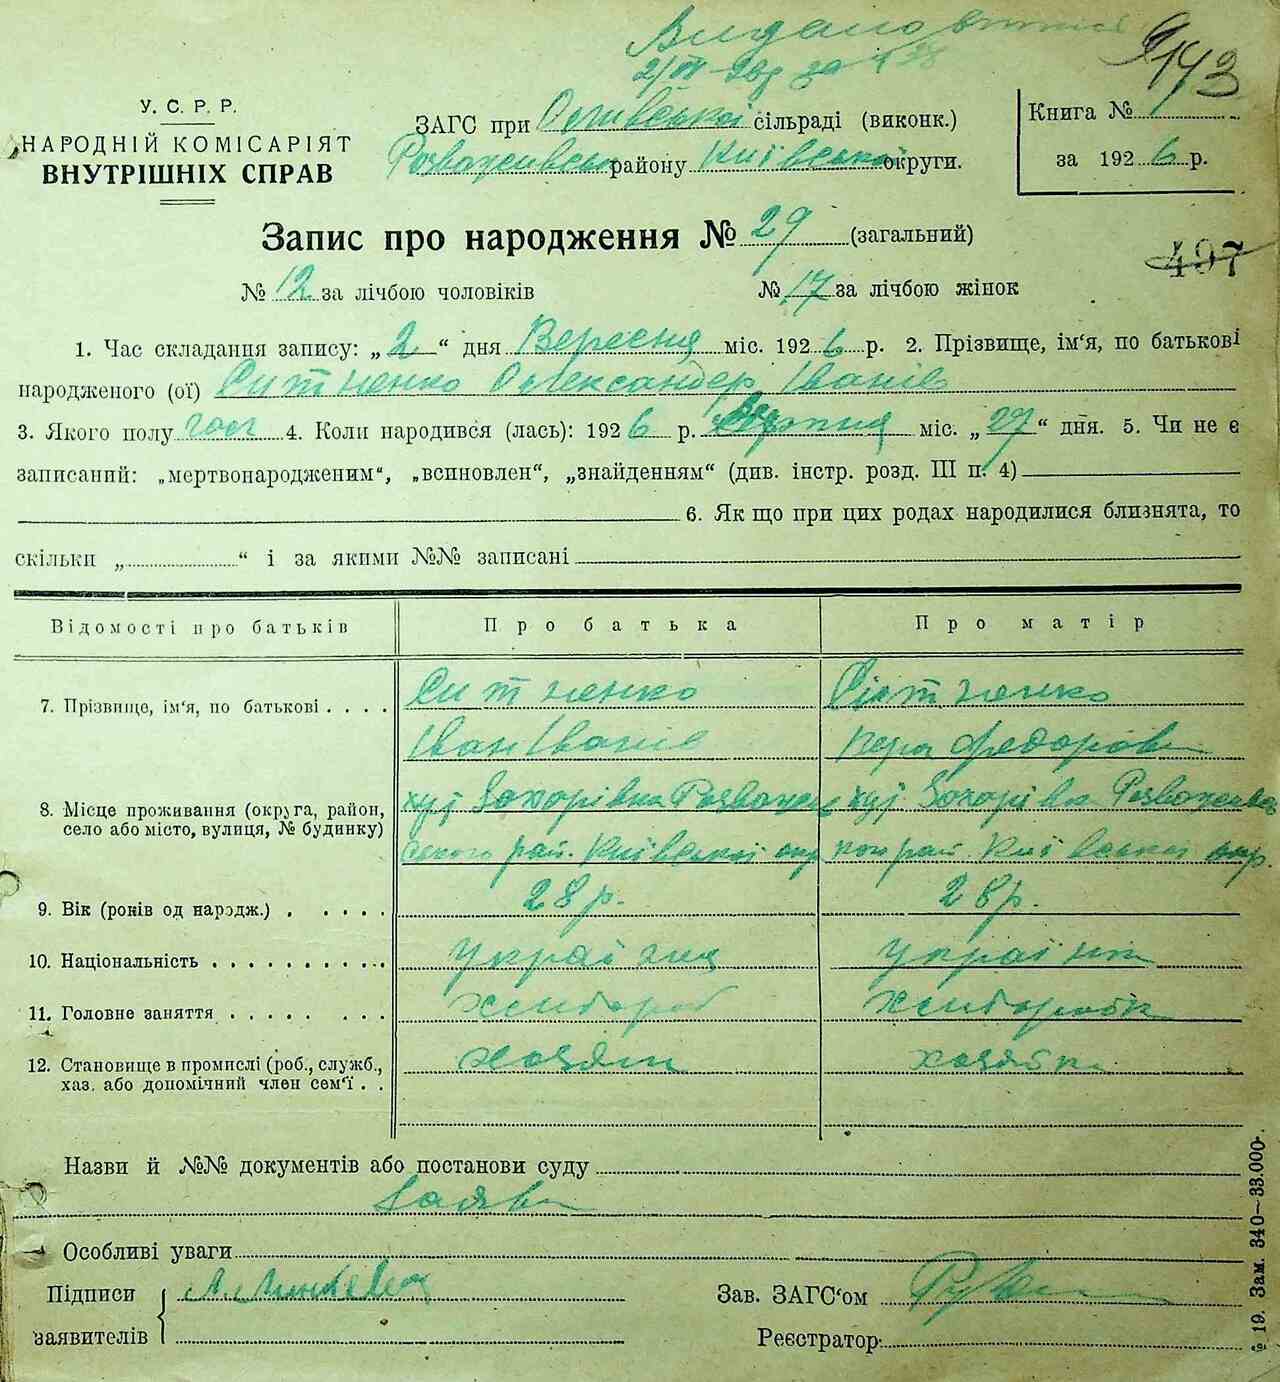 Видано
143
У. С. Р. Р.
НАРОДНІЙ КОМІСАРІЯТ
ВНУТРІШНІХ СПРАВ
ЗАГС при сільраді (виконк.)
району Київської округи.
Книга № 1
за 1926 р.
Запис про народження № 29 (загальний)
497
№ 12 за лічбою чоловіків № 17 за лічбою жінок
1. Час складання запису: „2“ дня Вересня міс. 1926 р. 2. Прізвище, ім‘я, по батькові
народженого (ої) Ситненко Олександер Іванів
3. Якого полу чол 4. Коли народився (лась): 1926 р. Серпня міс. „27“ дня. 5. Чи не є
записаний: „мертвонародженим“, „всиновлен“, „знайденням“ (див. інстр. розд. III п. 4)
6. Як що при цих родах народилися близнята, то
скільки „ “ і за якими №№ записані
Відомості про батьків Про батька Про матір
7. Прізвище, ім‘я, по батькові Ситненко Ситненко
Іван Іванів Федорівна
8. Місце проживання (округа, район, хут Захорівка Розважев хут Захорівка Розважев
село або місто, вулиця, № будинку) ського рай. Київської окр рай. Київської окр.
9. Вік (років од народж.) 28 р. 28 р.
10. Національність українец українк
11. Головне заняття хлибороб хлиборобк
12. Становище в промислі (роб., служб., хозяин хозяйка
хаз. або допомічний член сем‘ї
Назви й №№ документів або постанови суду
Заява
Особливі уваги
Підписи
заявителів
Зав. ЗАГС‘ом
Реєстратор
19. Зам. 340—33.000.